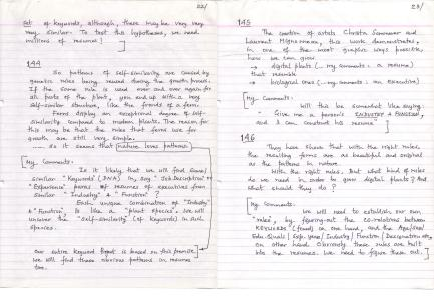 22/
Set of keywords, although these may be very very
very similar. To test this hypothesis, we need
millions of resumes!]
144
So patterns of self-similarity are caused by
genetic rules being reused during the growth process.
If the same rule is used over and over again for
all parts of the plant, you end up with a very
self-similar structure, like the fronds of a fern.
Ferns display an exceptional degree of self-
similarity compared to modern plants. The reason for
this may be that the rules that ferns use for
growth are still very simple.
...... So it seems that nature loves patterns.
My Comments.
Is it likely that we will find same/
similar "Keywords" (DNA) in, say "Job Description" or
"Experience" parts of resumes of executives from
similar "Industry" & "Function"?
Each unique combination of "Industry"
& "Function" is like a "plant species". We will
uncover the "Self-similarity" (of keywords) in each
species.
Our entire keyword thrust is based on this premise,
we will find these obvious patterns in resumes
too.
23/
145
The creation of artists Christa Sommerer and
Laurent Mignonneau, this work demonstrates,
in one of the most graphic ways possible,
how we can grow
→ digital plants (... my comments: a resume)
that resemble
→ biological ones (... my comments: an executive)
My Comments.
Will this be somewhat like saying:
Give me a person's INDUSTRY & FUNCTION,
and I can construct his resume"
146
They have shown that with the right rules,
the resulting forms are as beautiful and original
as the patterns in nature
With the right rules. But what kind of rules
do we need in order to grow digital plants? And
what should they do?
My Comments:
We will need to establish our own
"rules", by figuring-out the co-relations between
KEYWORDS (found) on one hand, and the Age/
Edu. Quali/ Exp. years/ Industry/ Function/ Designation etc.
on other hand. Obviously, these rules are built
into the resumes. We need to figure them out.]